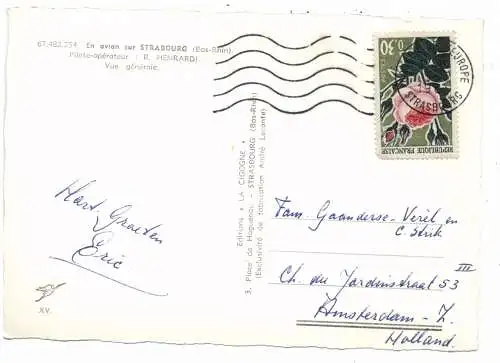 67.482.254 En avion sur STRASBOURG (Bas-Rhin).
Pilote-opérateur : R. HENRARD.
Vue générale.
Hart. Groeten
Eric
XV.
Editions « LA CIGOGNE »
3, Place de Haguenau - STRASBOURG (Bas-Rhin)
(Exclusivité de fabrication André Leconte)
0,30
REPUBLIQUE FRANÇAISE
EUROPE
STRASBOURG
Fam. Gaanderse-Verèl en
C. Strik
Ch. du Jardinstraat 53 III
Amsterdam - Z.
Holland.